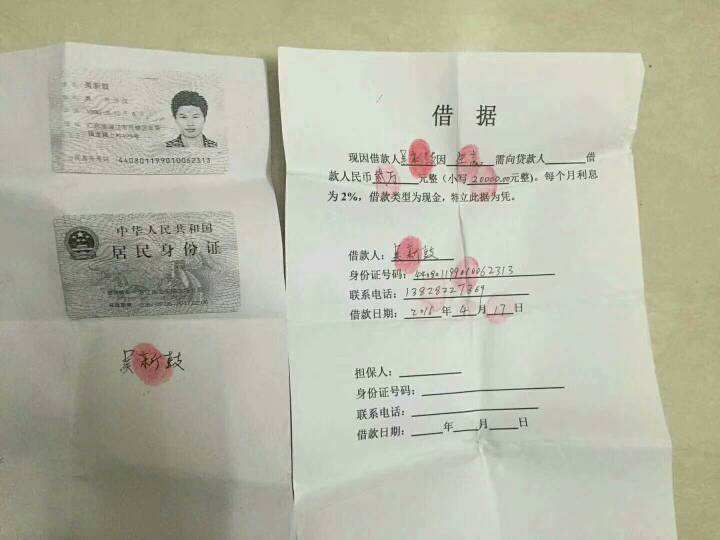 吴新鼓
440801199010062313
中华人民共和国
居民身份证
吴新鼓
借 据
现因借款人吴新鼓因 需向贷款人______借
款人民币贰万元整(小写20000.00元整)。每个月利息
为2%,借款类型为现金,特立此据为凭。
借款人:吴新鼓
身份证号码:440801199010062313
联系电话:13828227869
借款日期:2015年4月17日
担保人:
身份证号码:
联系电话:
借款日期:____年____月____日